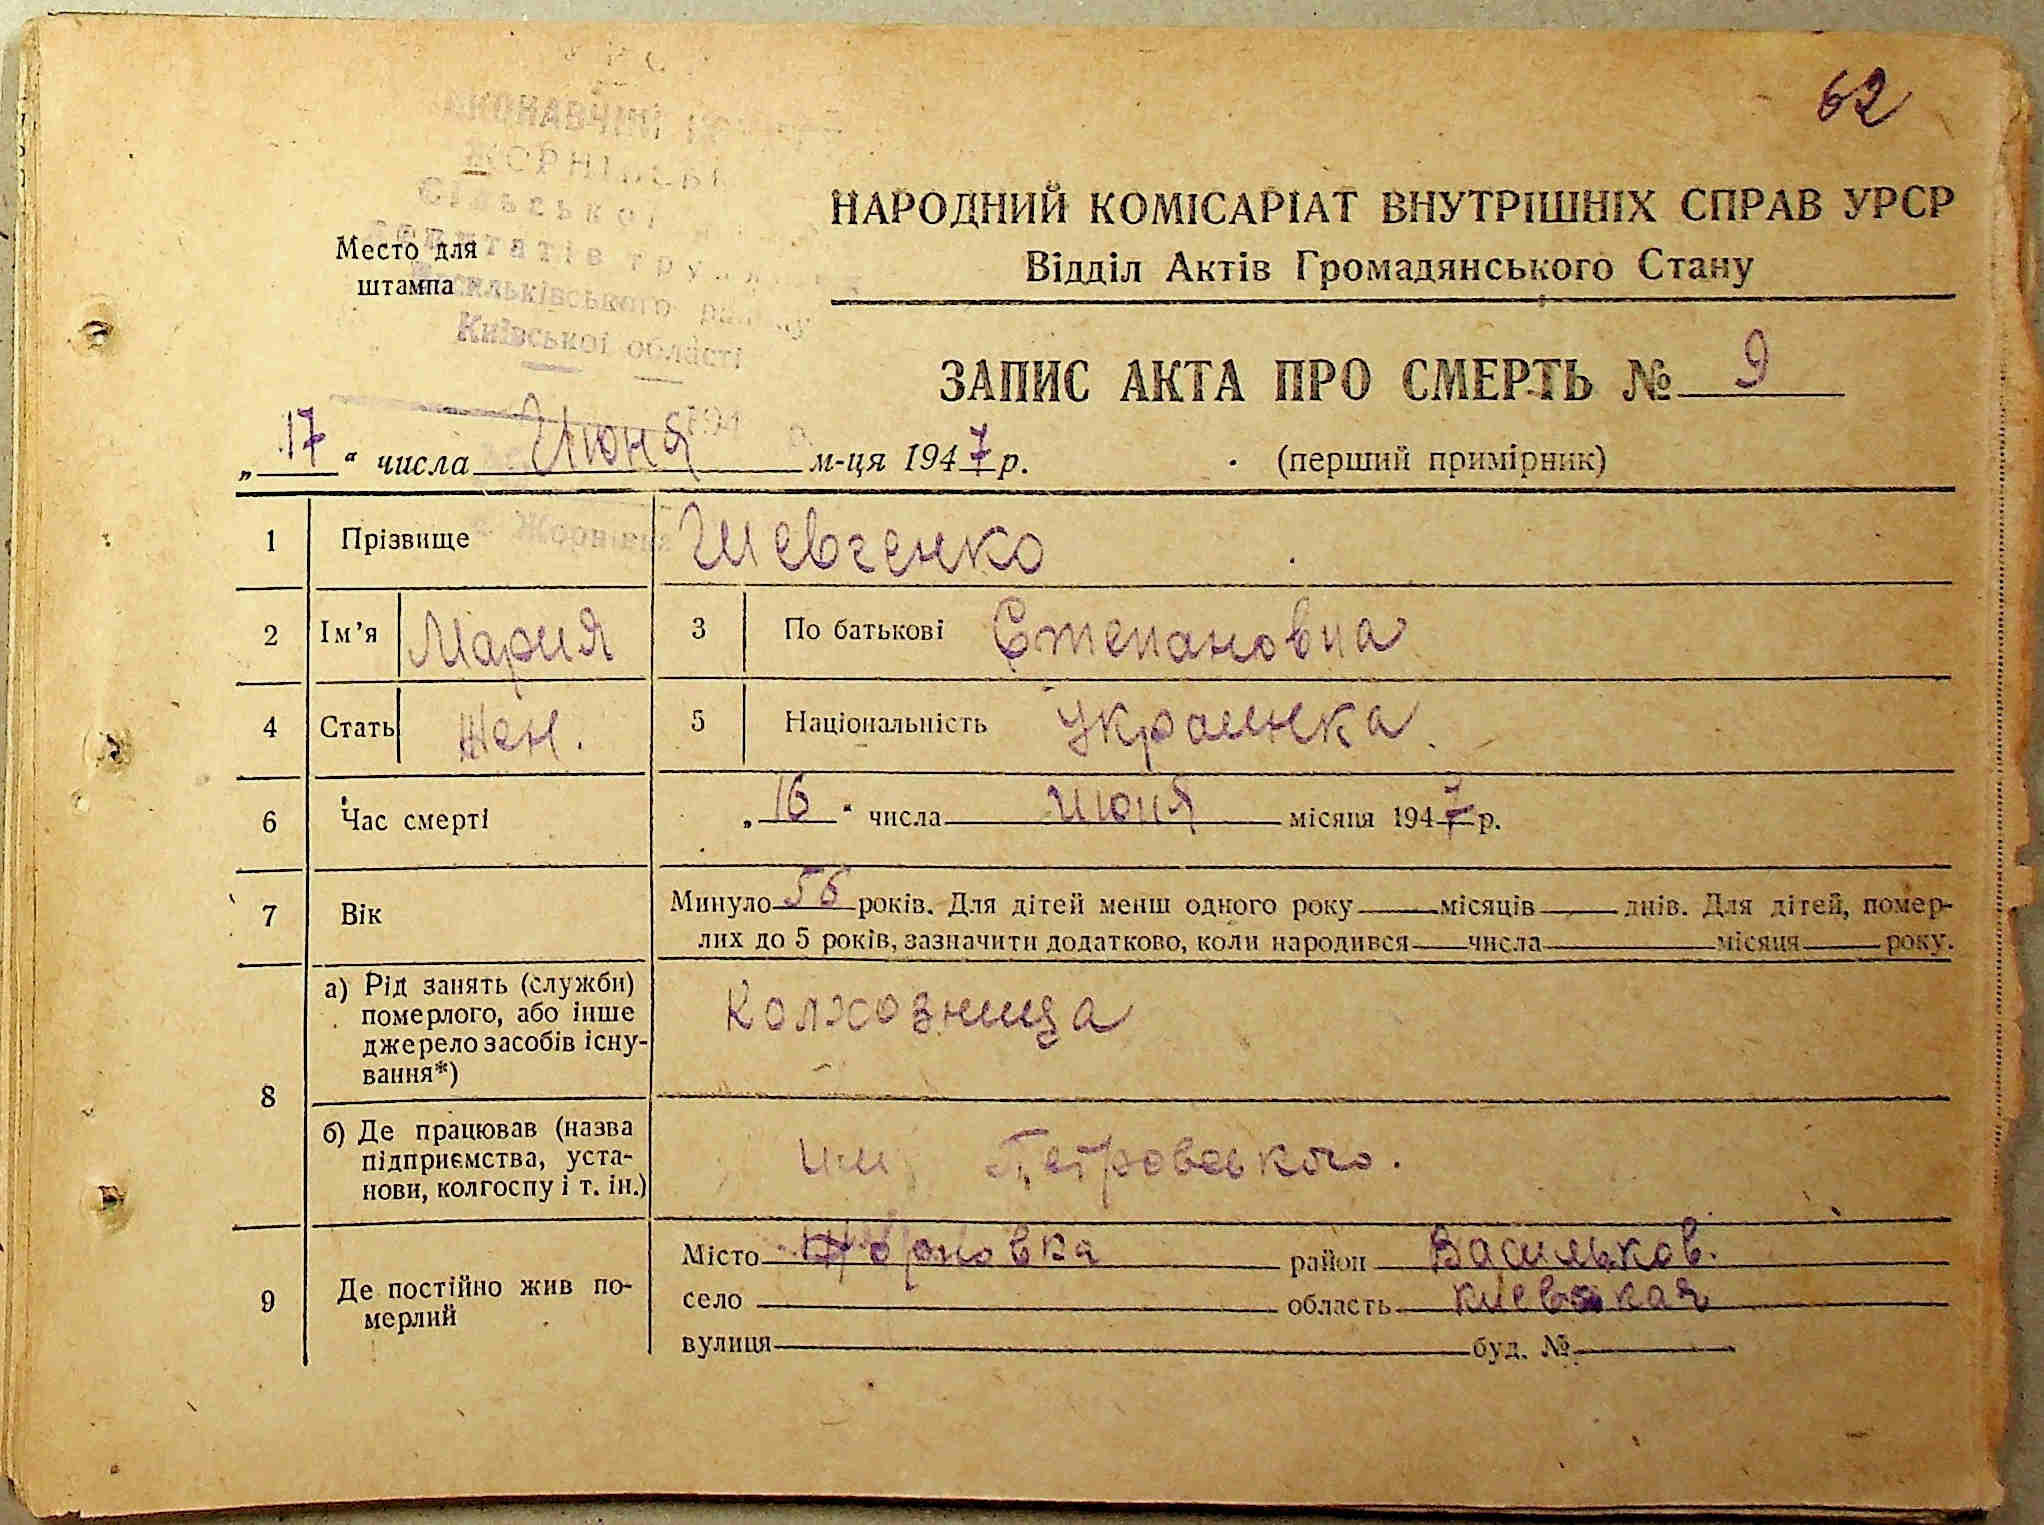 62
НАРОДНИЙ КОМІСАРІАТ ВНУТРІШНІХ СПРАВ УРСР
Відділ Актів Громадянського Стану
Место для
штампа
Київської області
ЗАПИС АКТА ПРО СМЕРТЬ № 9
„17“ числа Июня м-ця 1947 р. (перший примірник)
1 Прізвище Шевченко
2 Ім’я Мария 3 По батькові Степановна
4 Стать Жен. 5 Національність Украинка
6 Час смерті „16“ числа июня місяця 1947 р.
7 Вік Минуло 56 років. Для дітей менш одного року місяців днів. Для дітей, помер-
лих до 5 років, зазначити додатково, коли народився числа місяця року.
8 а) Рід занять (служби)
померлого, або інше
джерело засобів існу-
вання*)
Колхозница
б) Де працював (назва
підприємства, уста-
нови, колгоспу і т. ін.)
им Петровського.
9 Де постійно жив по-
мерлий
Місто Жорновка район Васильков.
село область киевская
вулиця буд. №